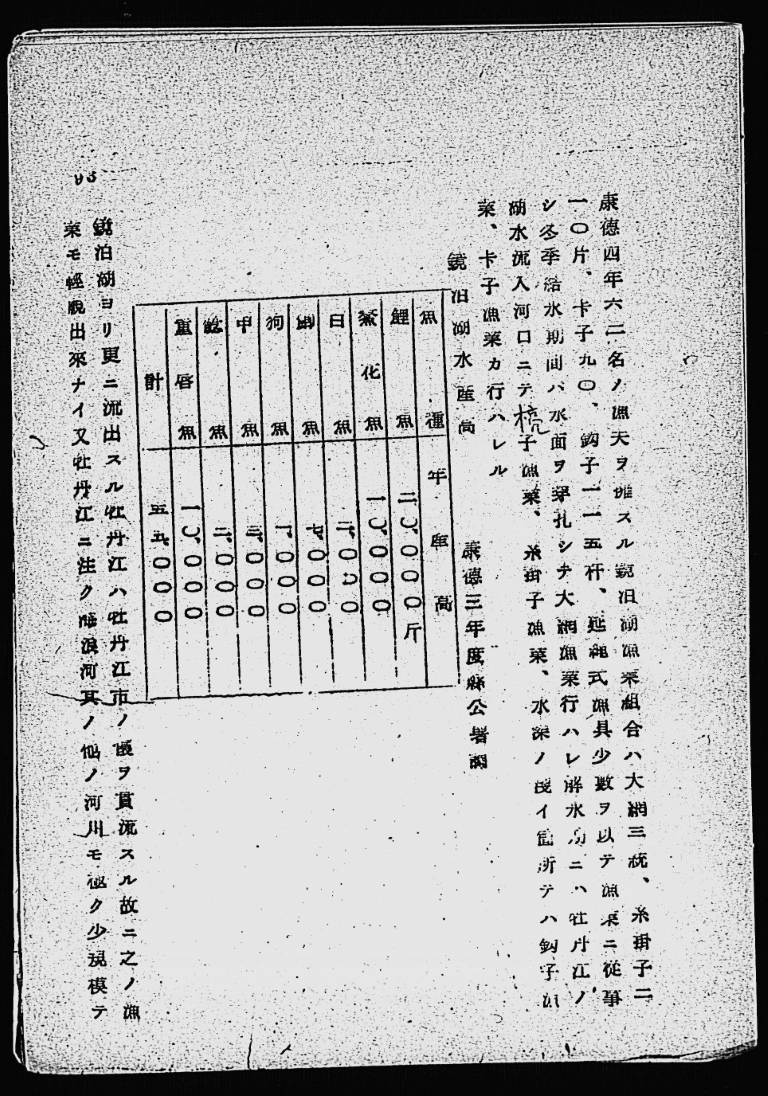 康德四年六二名ノ漁夫ヲ擁スル鏡泊湖漁業組合ハ大網三統、糸掛子二
一〇片、卡子九〇、鈎子一一五杆、延繩式漁具少數ヲ以テ漁業ニ從事
シ冬季結氷期間ハ氷面ヲ穿孔シテ大網漁業行ハレ解氷期ニハ牡丹江ノ
湖水流入河口ニテ梳子漁業、糸掛子漁業、水深ノ淺イ箇所テハ鈎子漁
業、卡子漁業カ行ハレル
鏡泊湖水産高 康德三年度縣公署調
魚種 年産高
鯉魚 二〇、〇〇〇斤
鰲化魚 一〇、〇〇〇
白魚 二、〇〇〇
鯽魚 七、〇〇〇
狗魚 一、〇〇〇
甲魚 三、〇〇〇
魚 二、〇〇〇
重唇魚 一〇、〇〇〇
計 五五、〇〇〇
鏡泊湖ヨリ更ニ流出スル牡丹江ハ牡丹江市ノ ヲ貫流スル故ニ之ノ漁
業モ輕脱出來ナイ又牡丹江ニ注ク海浪河其ノ他ノ河川モ極ク少規模テ